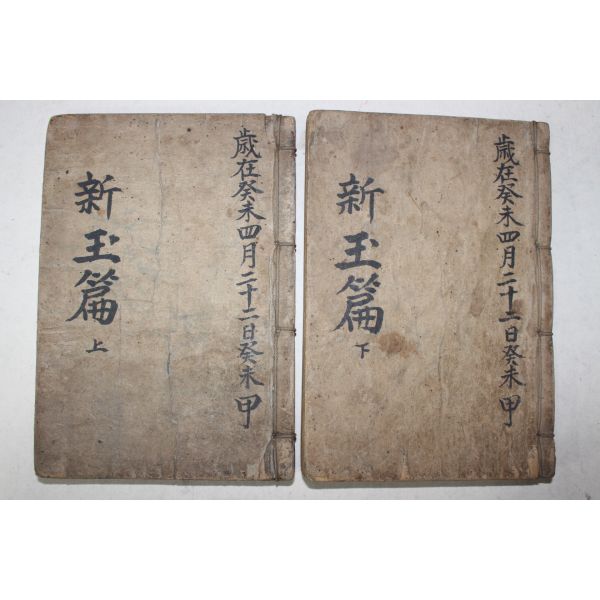 歲在癸未四月二十二日癸未甲
新玉篇
上
歲在癸未四月二十二日癸未甲
新玉篇
下